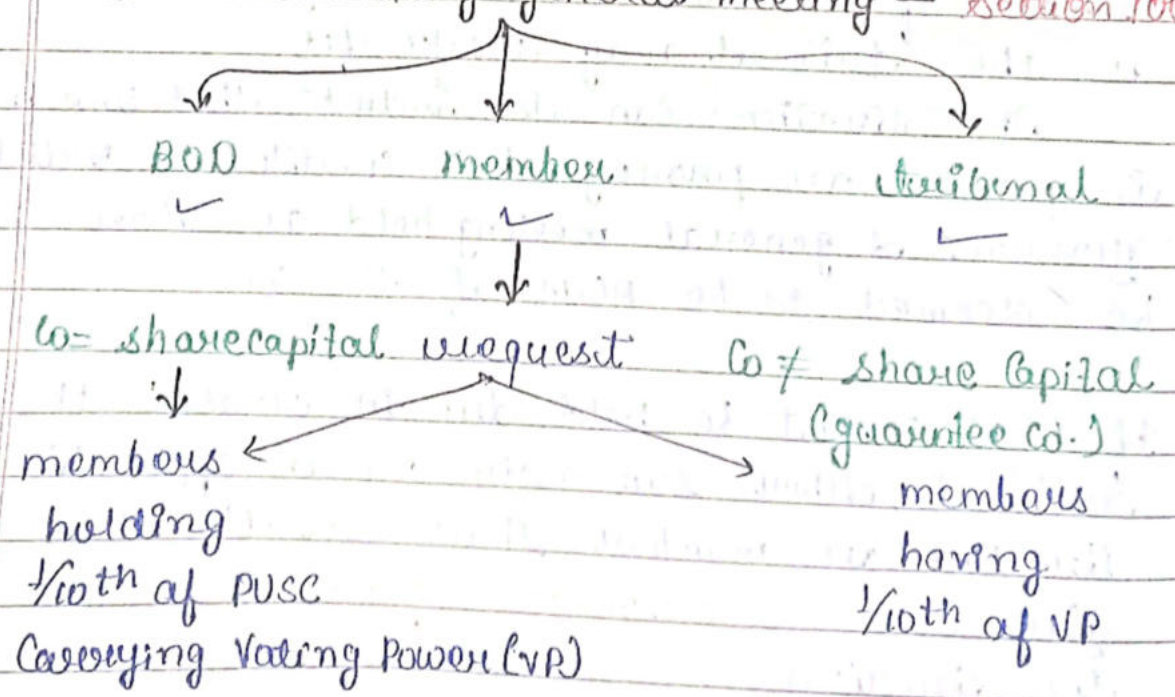 meeting - Section 100
BOD member tribunal
Co = sharecapital request Co ≠ share Capital
(guarantee co.)
members
holding
1/10th of PUSC
Carrying Voting Power (VP)
members
having
1/10th of VP